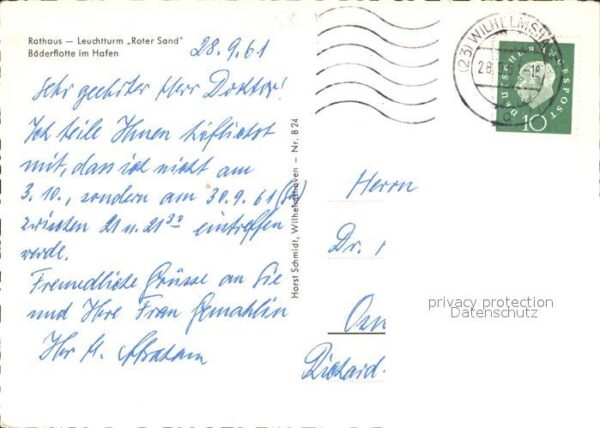 Rathaus — Leuchtturm „Roter Sand"
Bäderflotte im Hafen
28.9.61
Sehr geehrter Herr Doktor!
Ich teile Ihnen höflichst
mit, dass ich nicht am
3.10., sondern am 30.9.61 (Sa)
zwischen 21 u. 21³⁰ eintreffen
werde.
Freundliche Grüsse an Sie
und Ihre Frau Gemahlin
Ihr M. Abraham
Horst Schmidt, Wilhelmshaven — Nr. B 24
(23) WILHELMSHA
28
DEUTSCHE BUNDESPOST
10
Herrn
Dr.
Osn
Richard
privacy protection
Datenschutz